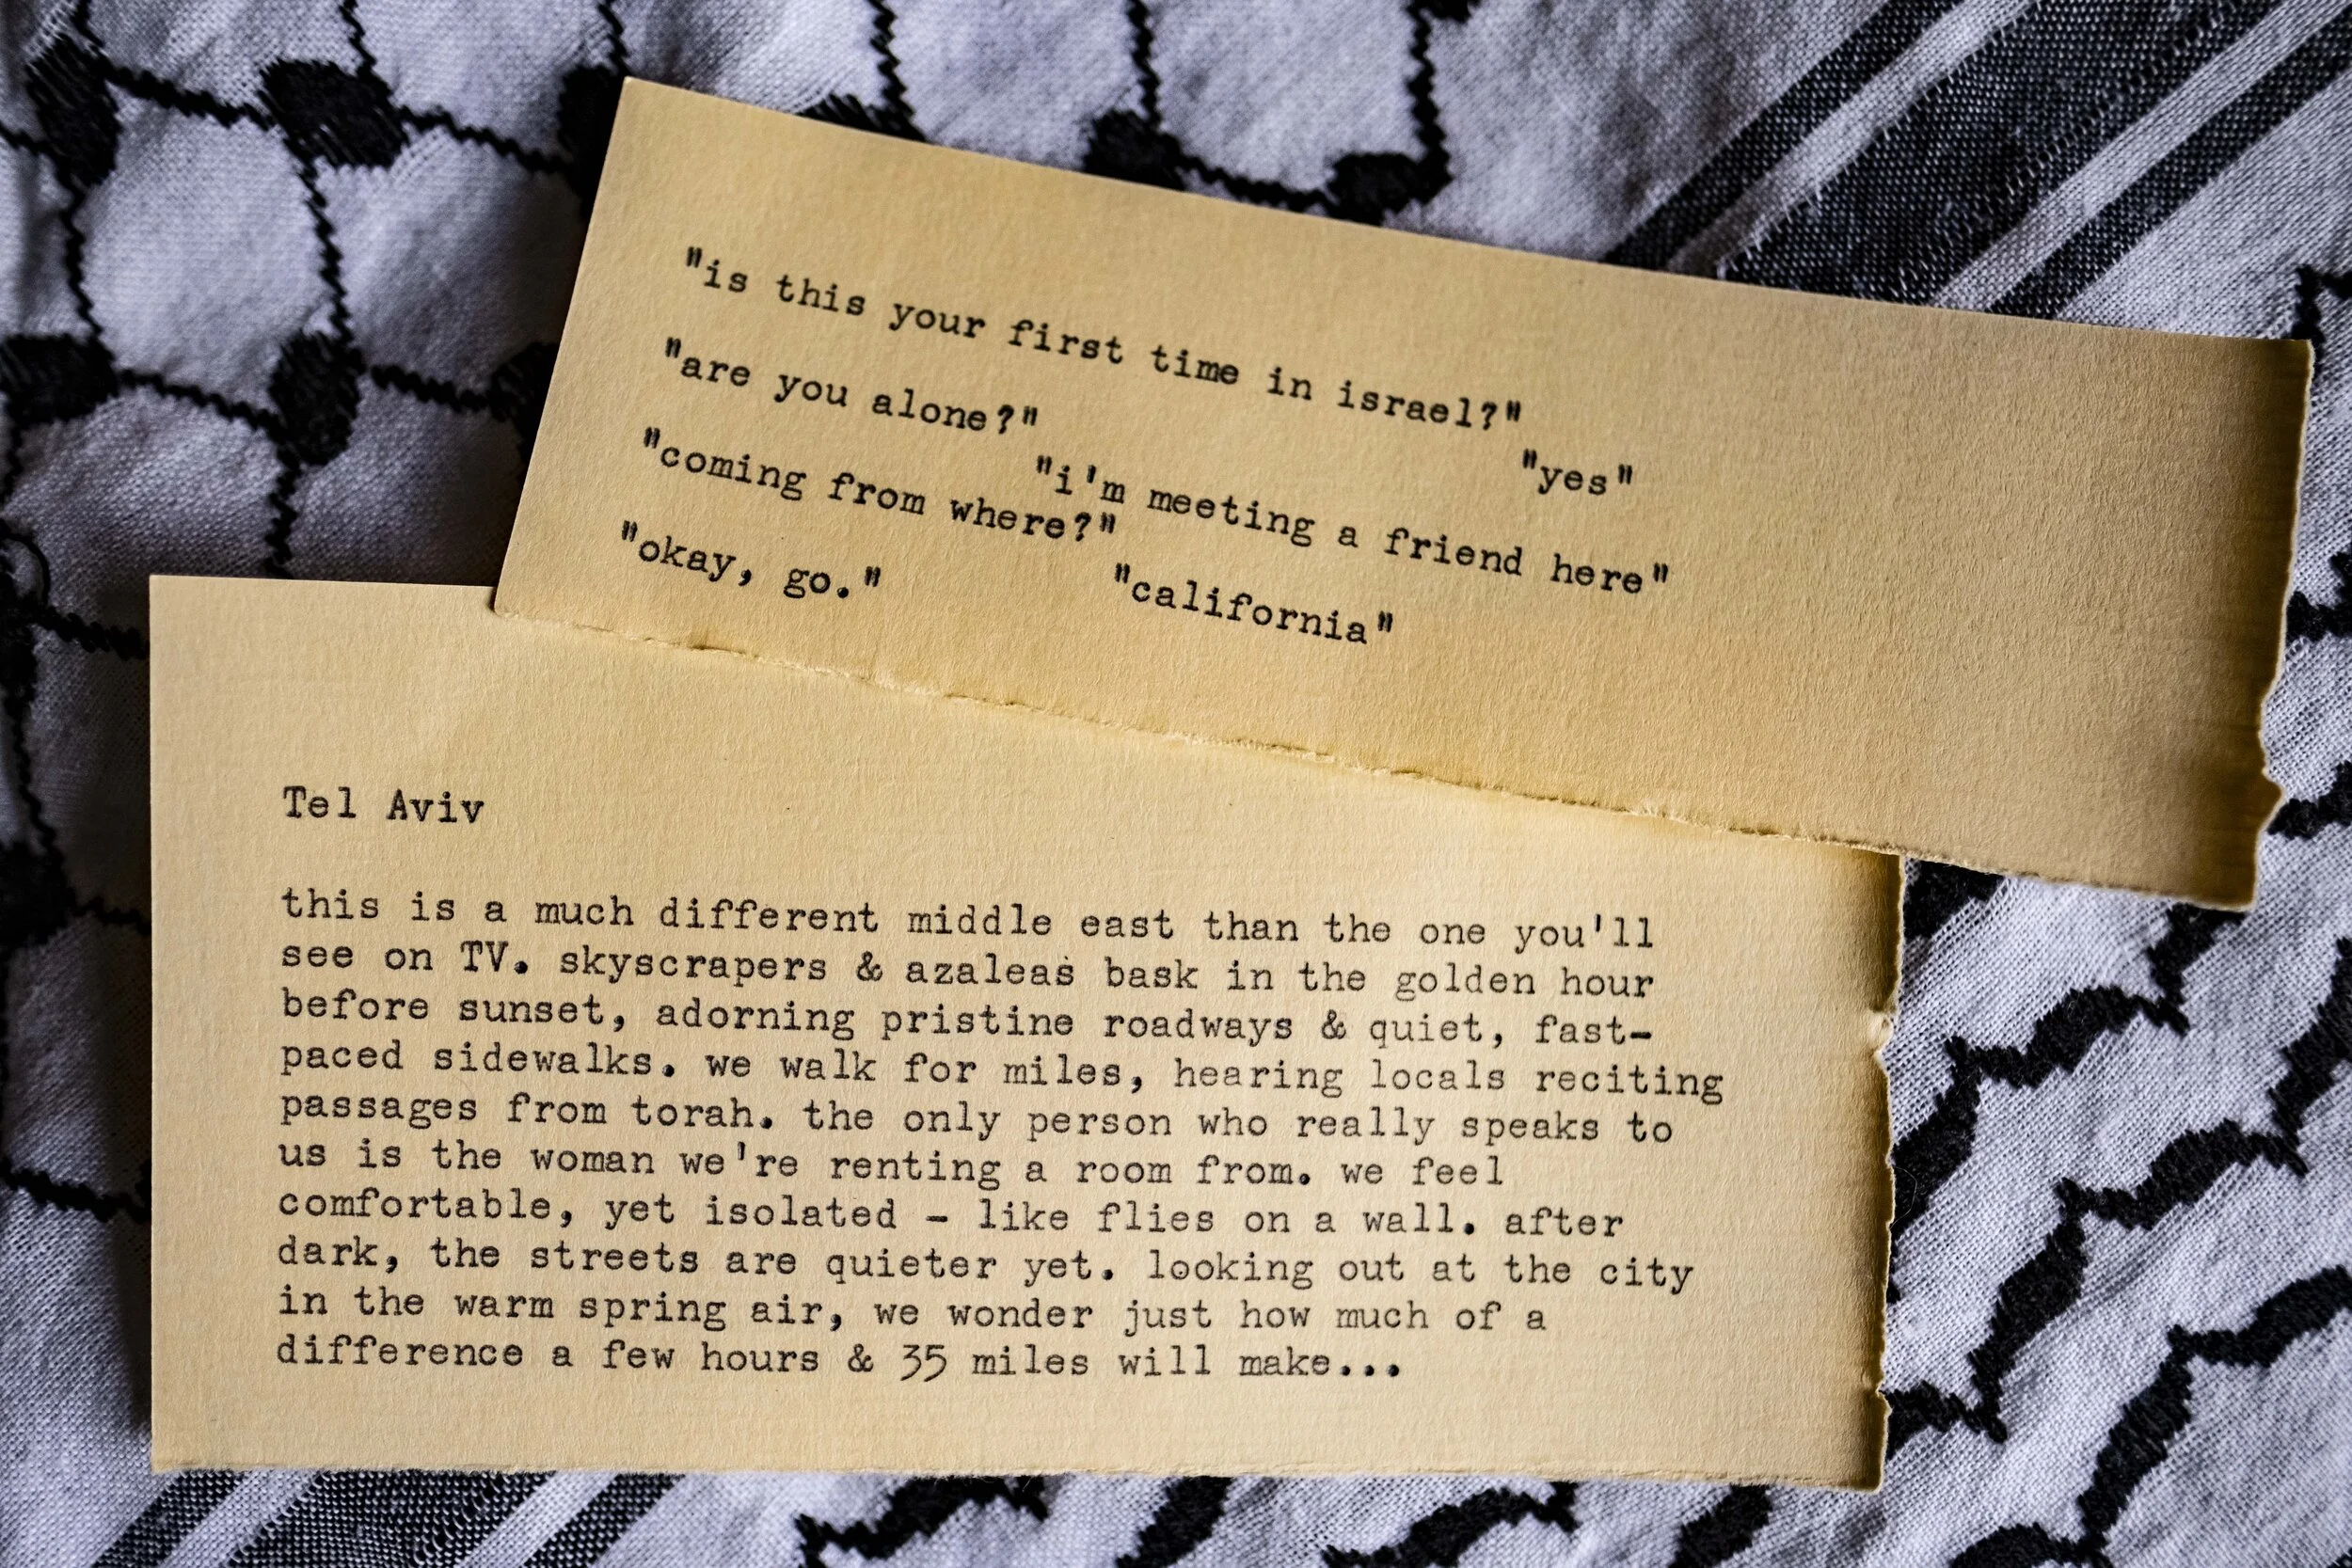 "is this your first time in israel?"
"yes"
"are you alone?"
"i'm meeting a friend here"
"coming from where?"
"california"
"okay, go."
Tel Aviv
this is a much different middle east than the one you'll
see on TV. skyscrapers & azaleas bask in the golden hour
before sunset, adorning pristine roadways & quiet, fast-
paced sidewalks. we walk for miles, hearing locals reciting
passages from torah. the only person who really speaks to
us is the woman we're renting a room from. we feel
comfortable, yet isolated - like flies on a wall. after
dark, the streets are quieter yet. looking out at the city
in the warm spring air, we wonder just how much of a
difference a few hours & 35 miles will make...